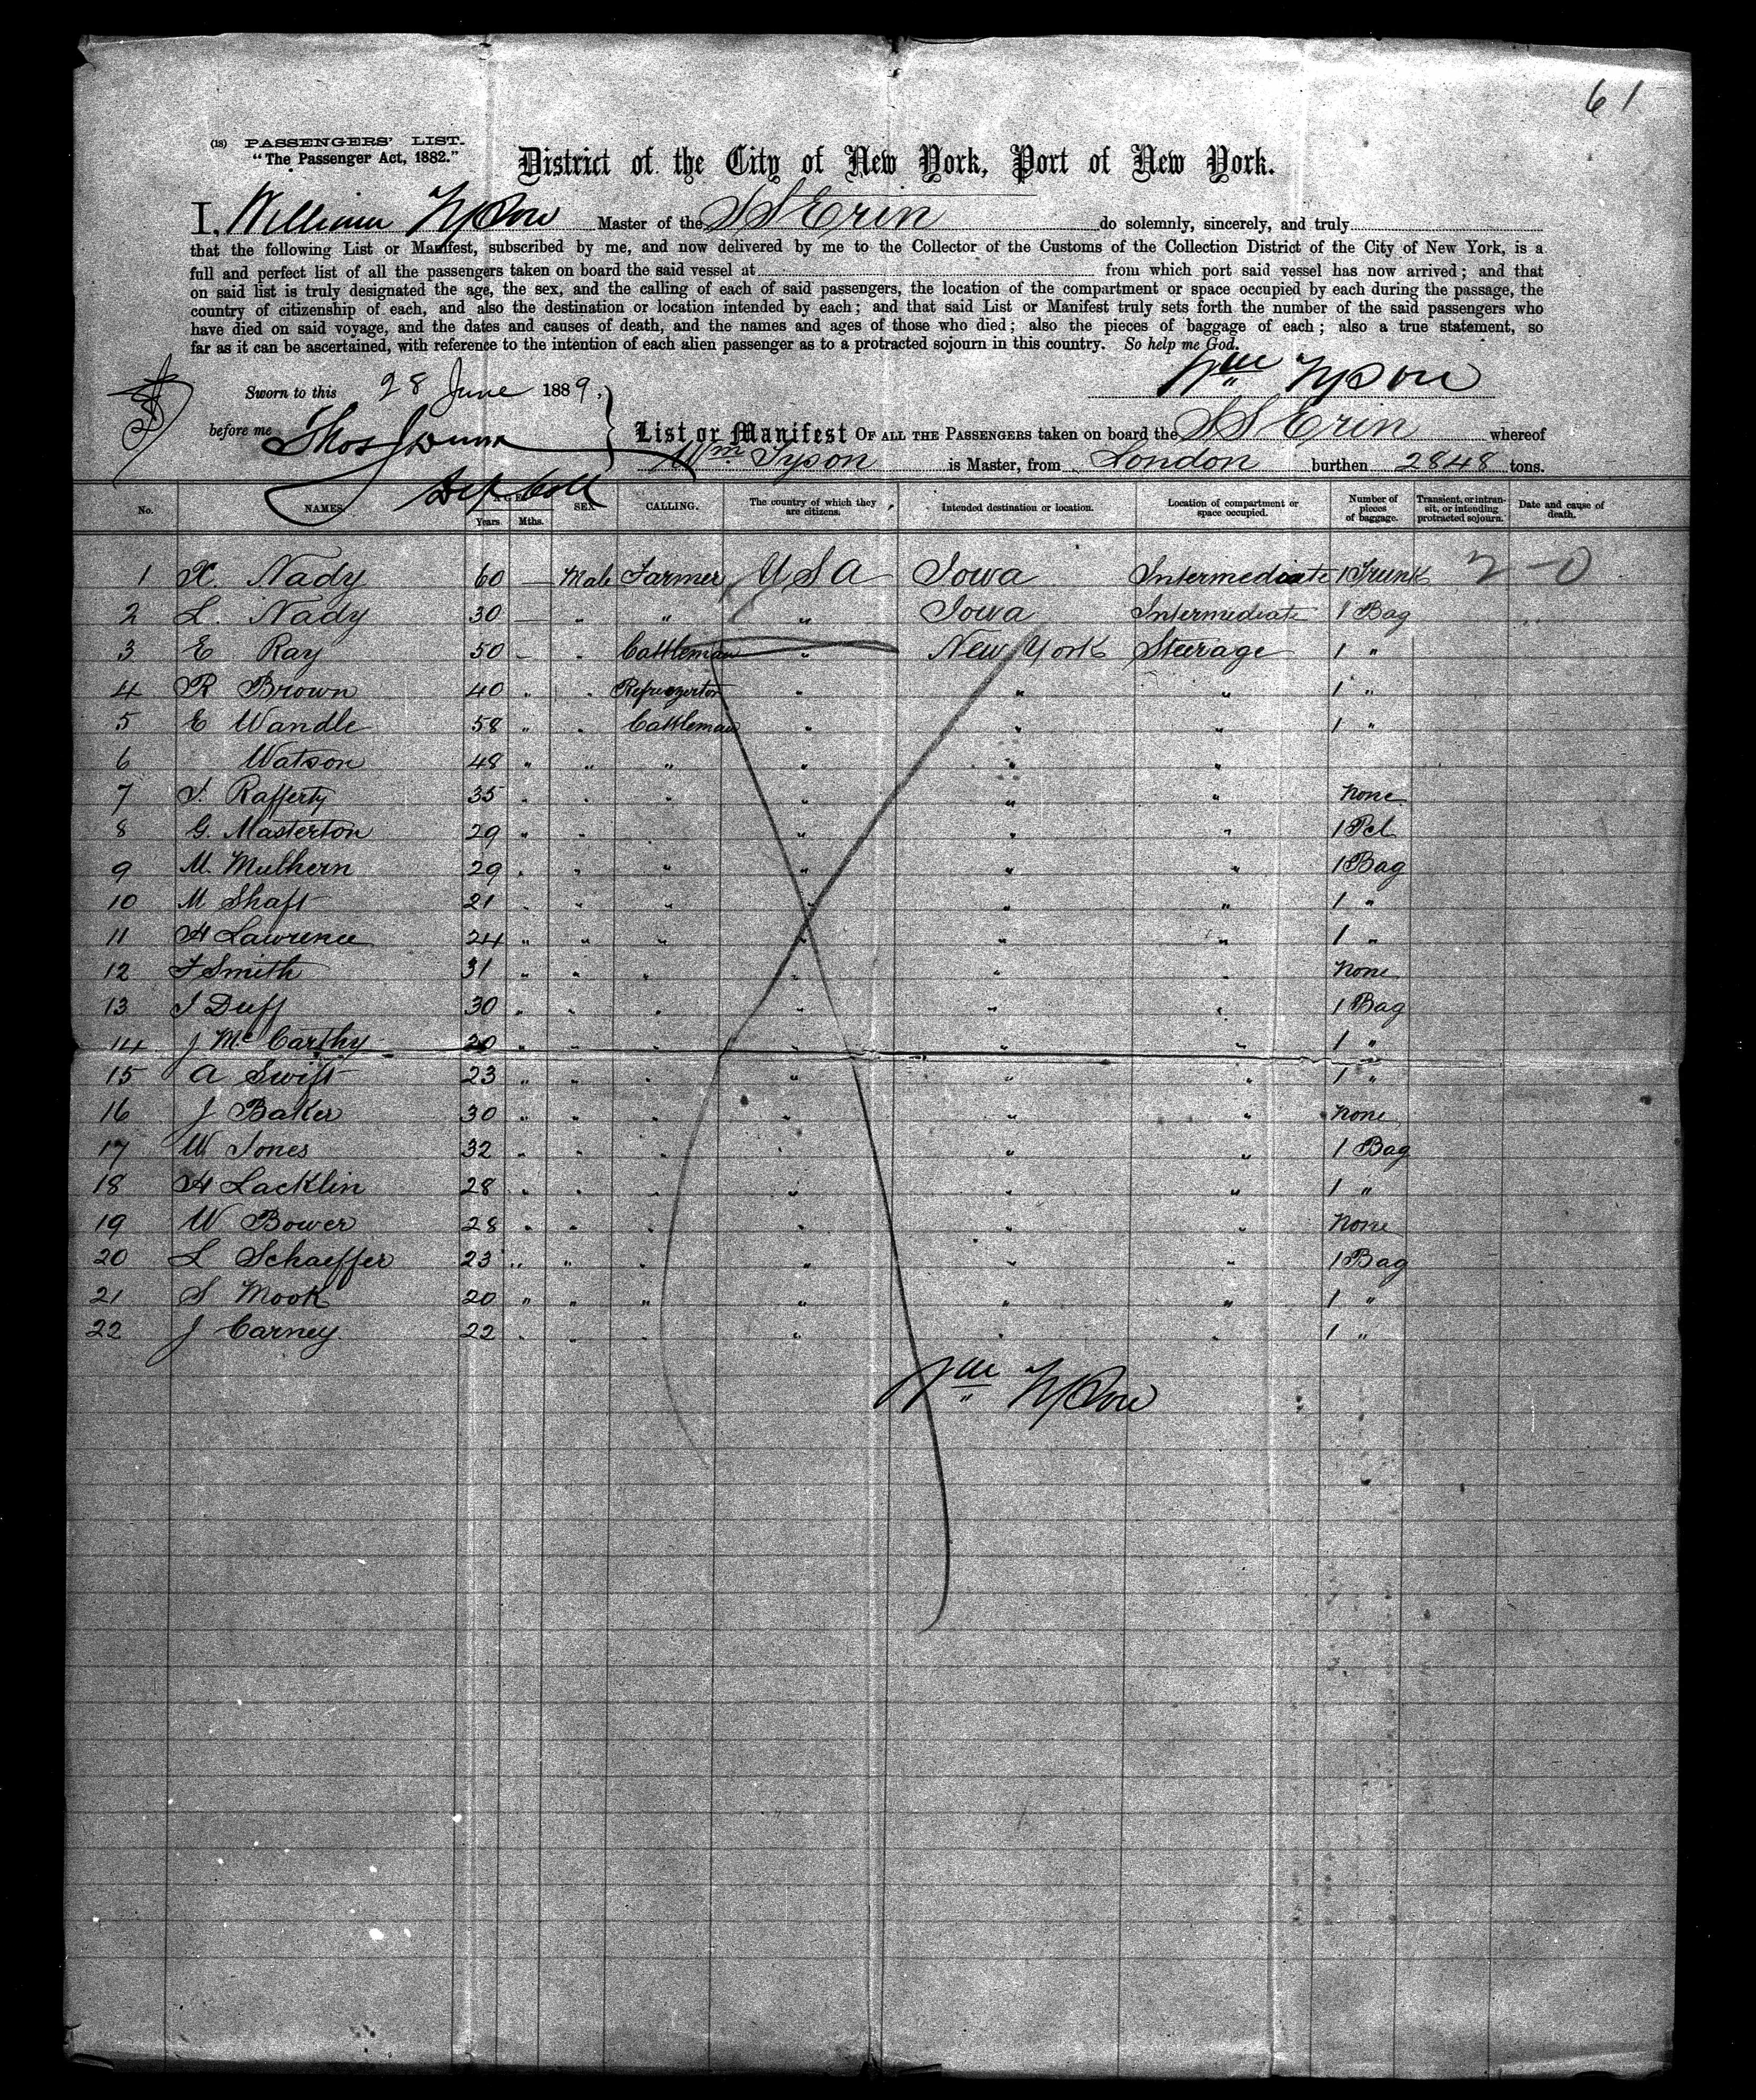 61
(18) PASSENGERS' LIST.
"The Passenger Act, 1882."
District of the City of New York, Port of New York.
I, William Tyson Master of the SS Erin do solemnly, sincerely, and truly
that the following List or Manifest, subscribed by me, and now delivered by me to the Collector of the Customs of the Collection District of the City of New York, is a
full and perfect list of all the passengers taken on board the said vessel at from which port said vessel has now arrived; and that
on said list is truly designated the age, the sex, and the calling of each of said passengers, the location of the compartment or space occupied by each during the passage, the
country of citizenship of each, and also the destination or location intended by each; and that said List or Manifest truly sets forth the number of the said passengers who
have died on said voyage, and the dates and causes of death, and the names and ages of those who died; also the pieces of baggage of each; also a true statement, so
far as it can be ascertained, with reference to the intention of each alien passenger as to a protracted sojourn in this country. So help me God.
Wm Tyson
Sworn to this 28 June 1889,
before me Thos Dunn
Dep Coll
List or Manifest OF ALL THE PASSENGERS taken on board the SS Erin whereof
Wm Tyson is Master, from London burthen 2848 tons.
No. NAMES. AGE. Years. Mths. SEX CALLING. The country of which they are citizens. Intended destination or location. Location of compartment or space occupied. Number of pieces of baggage. Transient, or intransit, or intending protracted sojourn. Date and cause of death.
1 X. Nady 60 — Male Farmer U S A Iowa Intermediate 1 Trunk 2-0
2 L. Nady 30 — " " " Iowa Intermediate 1 Bag
3 E Ray 50 — " Cattleman " New York Steerage 1 "
4 R Brown 40 " " Refriegertor " " " 1 "
5 E Wandle 58 " " Cattleman " " " 1 "
6 Watson 48 " " " " " "
7 J. Rafferty 35 " " " " " " None
8 G. Masterton 29 " " " " " " 1 Pcl
9 M. Mulhern 29 " " " " " " 1 Bag
10 M Shaft 21 " " " " " " 1 "
11 H Lawrence 24 " " " " " " 1 "
12 F Smith 31 " " " " " " None
13 J Duff 30 " " " " " " 1 Bag
14 J McCarthy 20 " " " " " " 1 "
15 A Swift 23 " " " " " " 1 "
16 J Baker 30 " " " " " " None
17 W Jones 32 " " " " " " 1 Bag
18 H Lacklin 28 " " " " " " 1 "
19 W Bower 28 " " " " " " None
20 L Schaeffer 23 " " " " " " 1 Bag
21 S Mook 20 " " " " " " 1 "
22 J Carney 22 " " " " " " 1 "
Wm Tyson